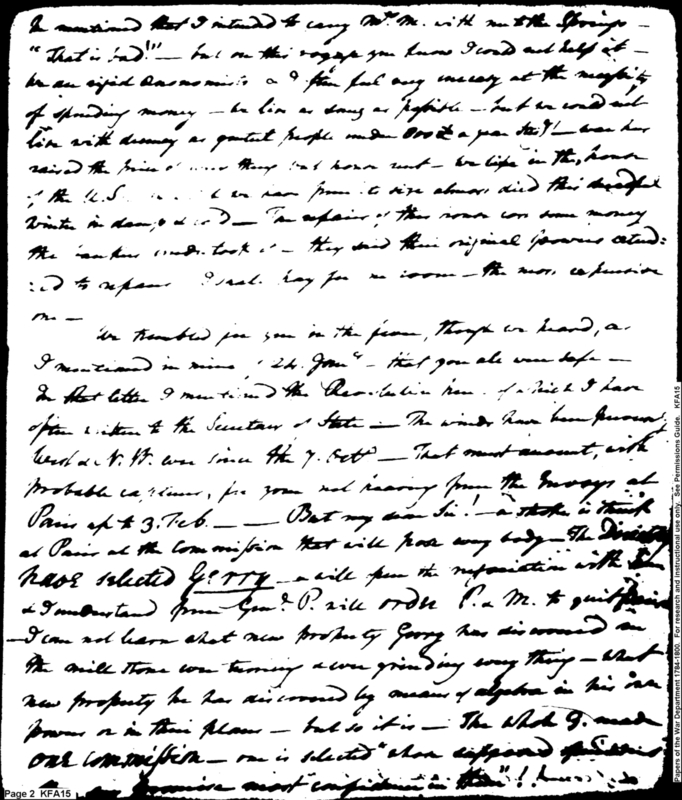 mentioned that I intended to carry Mrs. M. with me to the Springs —
"That is bad!" — but on this voyage you know I could not help it —
We are rigid œconomists & I often feel very uneasy at the necessity
of spending money — We live as snug as possible — but we could not
live with decency as genteel people under a year — war has
raised the price of every thing but house rent — We live in the house
of the U.S. we have from its size almost died this dreadful
Winter in damp & cold — The repairs of this house cost some money
the bankers undertook it — they said their original powers
to repairs I shall pay for no room — the most expensive
one —
We trembled for you in the fever, though we heard, as
I mentioned in mine 24. Jany — that you all were safe —
In that letter I mentioned the of which I have
often written to the Secretary of State — The winds have been
West & N. W. ever since the 7. Octr — That must account, with
probable captures, for your not hearing from the Envoys at
Paris up to 3. Feb. — — But my dear Sir! — a stroke is struck
at Paris at the Commission that will every body — The Directory
have selected Gerry — & will the negociation with him
& I understand from Genl. P. will order P. & M. to quit Paris
— I can not learn what new property Gerry has discovered in
the mill stone ever turning & ever grinding every thing — What
new property he has discovered by means of algebra in his own
powers or in their plans — but so it is — The whole 3. made
one commission — one is selected "whose supposed
promise most confidence in them"!!
Page 2 KFA15
Papers of the War Department 1784-1800. For research and instructional use only. See Permissions Guide. KFA15